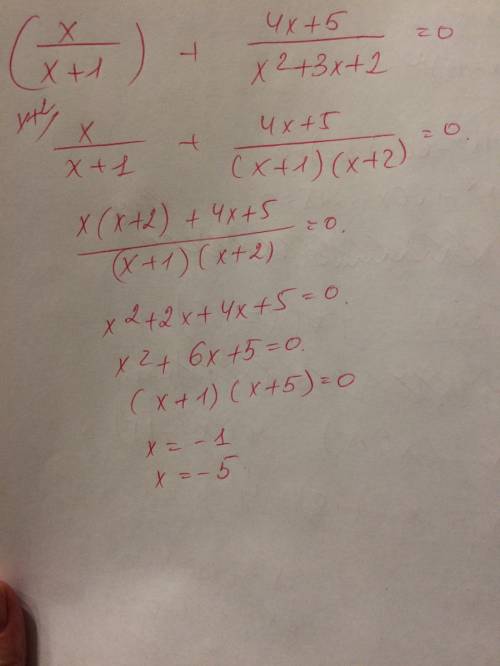 (x/(x+1)) + (4x+5)/(x²+3x+2) = 0
x+2/ x/(x+1) + (4x+5)/((x+1)(x+2)) = 0.
(x(x+2) + 4x+5)/((x+1)(x+2)) = 0.
x²+2x+4x+5=0.
x²+6x+5=0.
(x+1)(x+5)=0
x=-1
x=-5